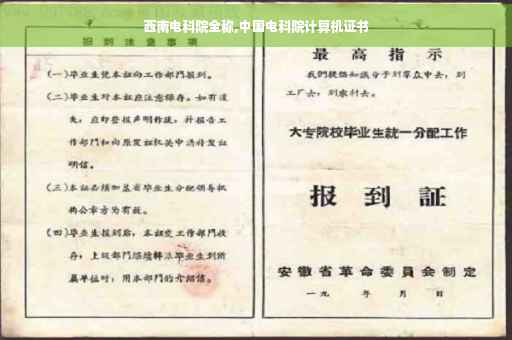 西南电科院全称,中国电科院计算机证书
报到注意事项
(一)毕业生凭本証向工作部門报到。
(二)毕业生对本証应注意保存。如有遺
失,应即登报声明作废,并报告工
作部門和向原发証机关申請补发証
明信。
(三)本証必須加盖省毕业生分配领导机
构公章方为有效。
(四)毕业生报到后,本証交工作部門收
存;上級部門給轉派毕业生到所
属单位时,用本部門的介绍信。
最高指示
我們提倡知識分子到羣众中去,到
工厂去,到农村去。
大专院校毕业生統一分配工作
报到証
安徽省革命委員会制定
一九 年 月 日